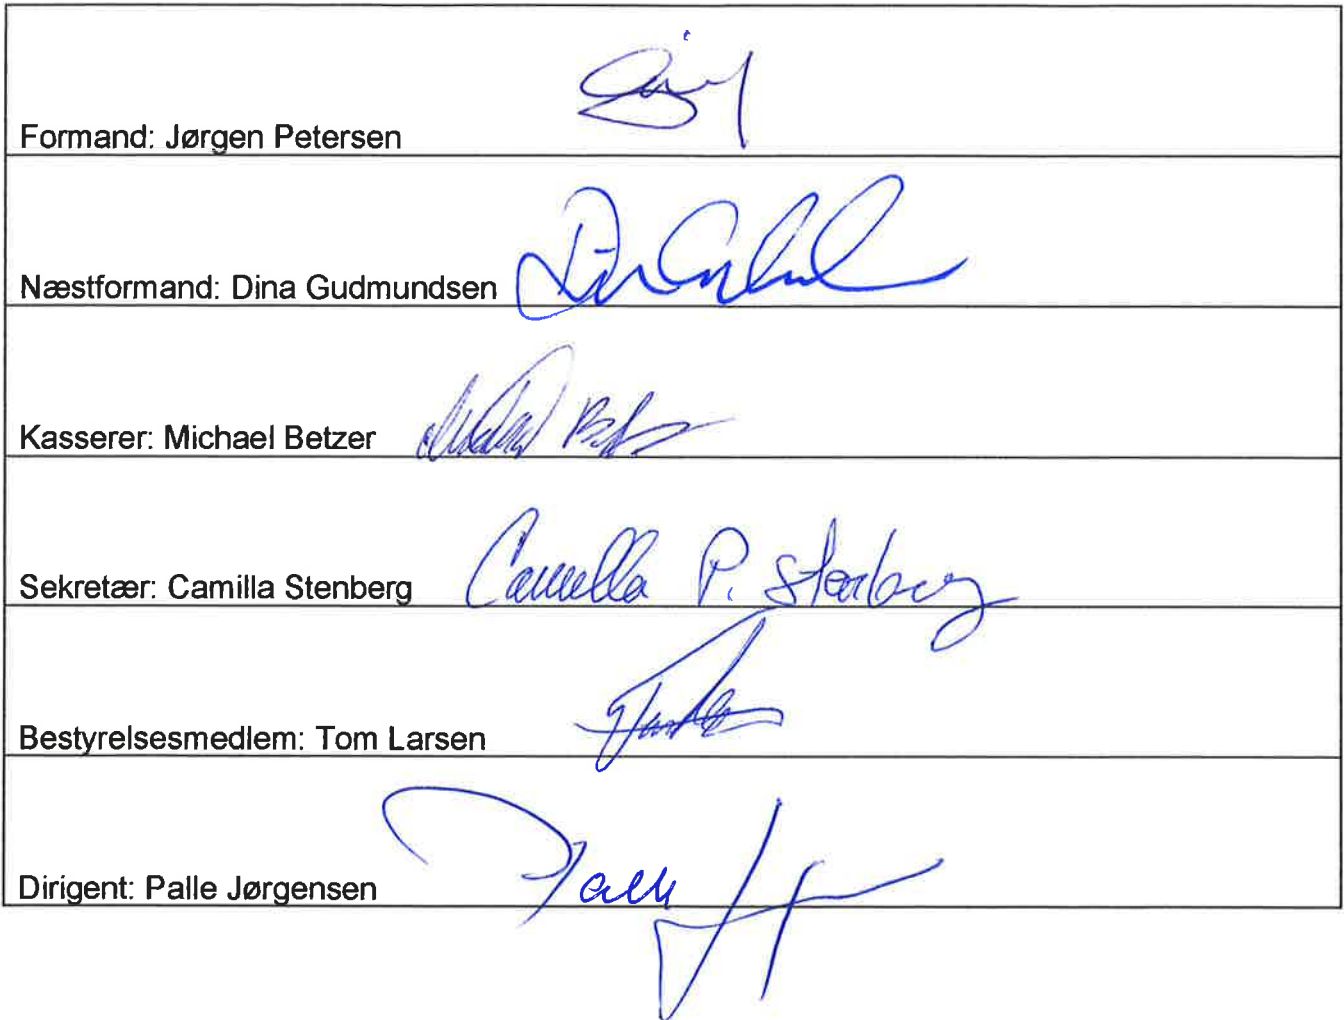 Formand: Jørgen Petersen
Næstformand: Dina Gudmundsen
Kasserer: Michael Betzer
Sekretær: Camilla Stenberg Camilla P. Stenberg
Bestyrelsesmedlem: Tom Larsen
Dirigent: Palle Jørgensen Palle